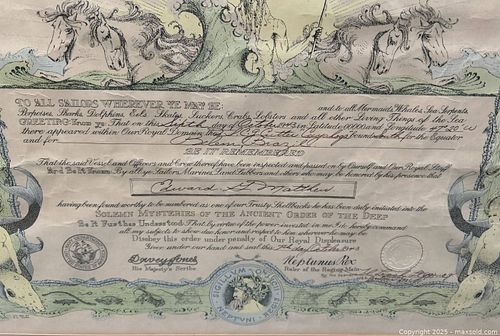 TO ALL SAILORS WHEREVER YE MAY BE: and to all Mermaids, Whales, Sea Serpents,
Porpoises, Sharks, Dolphins, Eels, Skates, Suckers, Crabs, Lobsters and all other Living Things of the Sea
GREETING: Know ye: That on this day of in Latitude 00000 and Longitude
there appeared within Our Royal Domain the bound for the Equator
and for Brazil
BE IT REMEMBERED
That the said Vessel and Officers and Crew thereof have been inspected and passed on by Ourself and Our Royal Staff
And Be It Known: By all ye Sailors, Marines, Land Lubbers and others who may be honored by his presence that
Edward
having been found worthy to be numbered as one of our Trusty Shellbacks he has been duly initiated into the
SOLEMN MYSTERIES OF THE ANCIENT ORDER OF THE DEEP
Be It Further Understood: That by virtue of the power invested in me I do hereby command
all my subjects to show due honor and respect to him wherever he may be.
Disobey this order under penalty of Our Royal Displeasure
Given under our hand and seal this
Davey Jones
His Majesty's Scribe
Neptunus Rex
Ruler of the Raging Main
SIGILLVM
NEPTVNI REX
Copyright © 2025 - maxsold.com